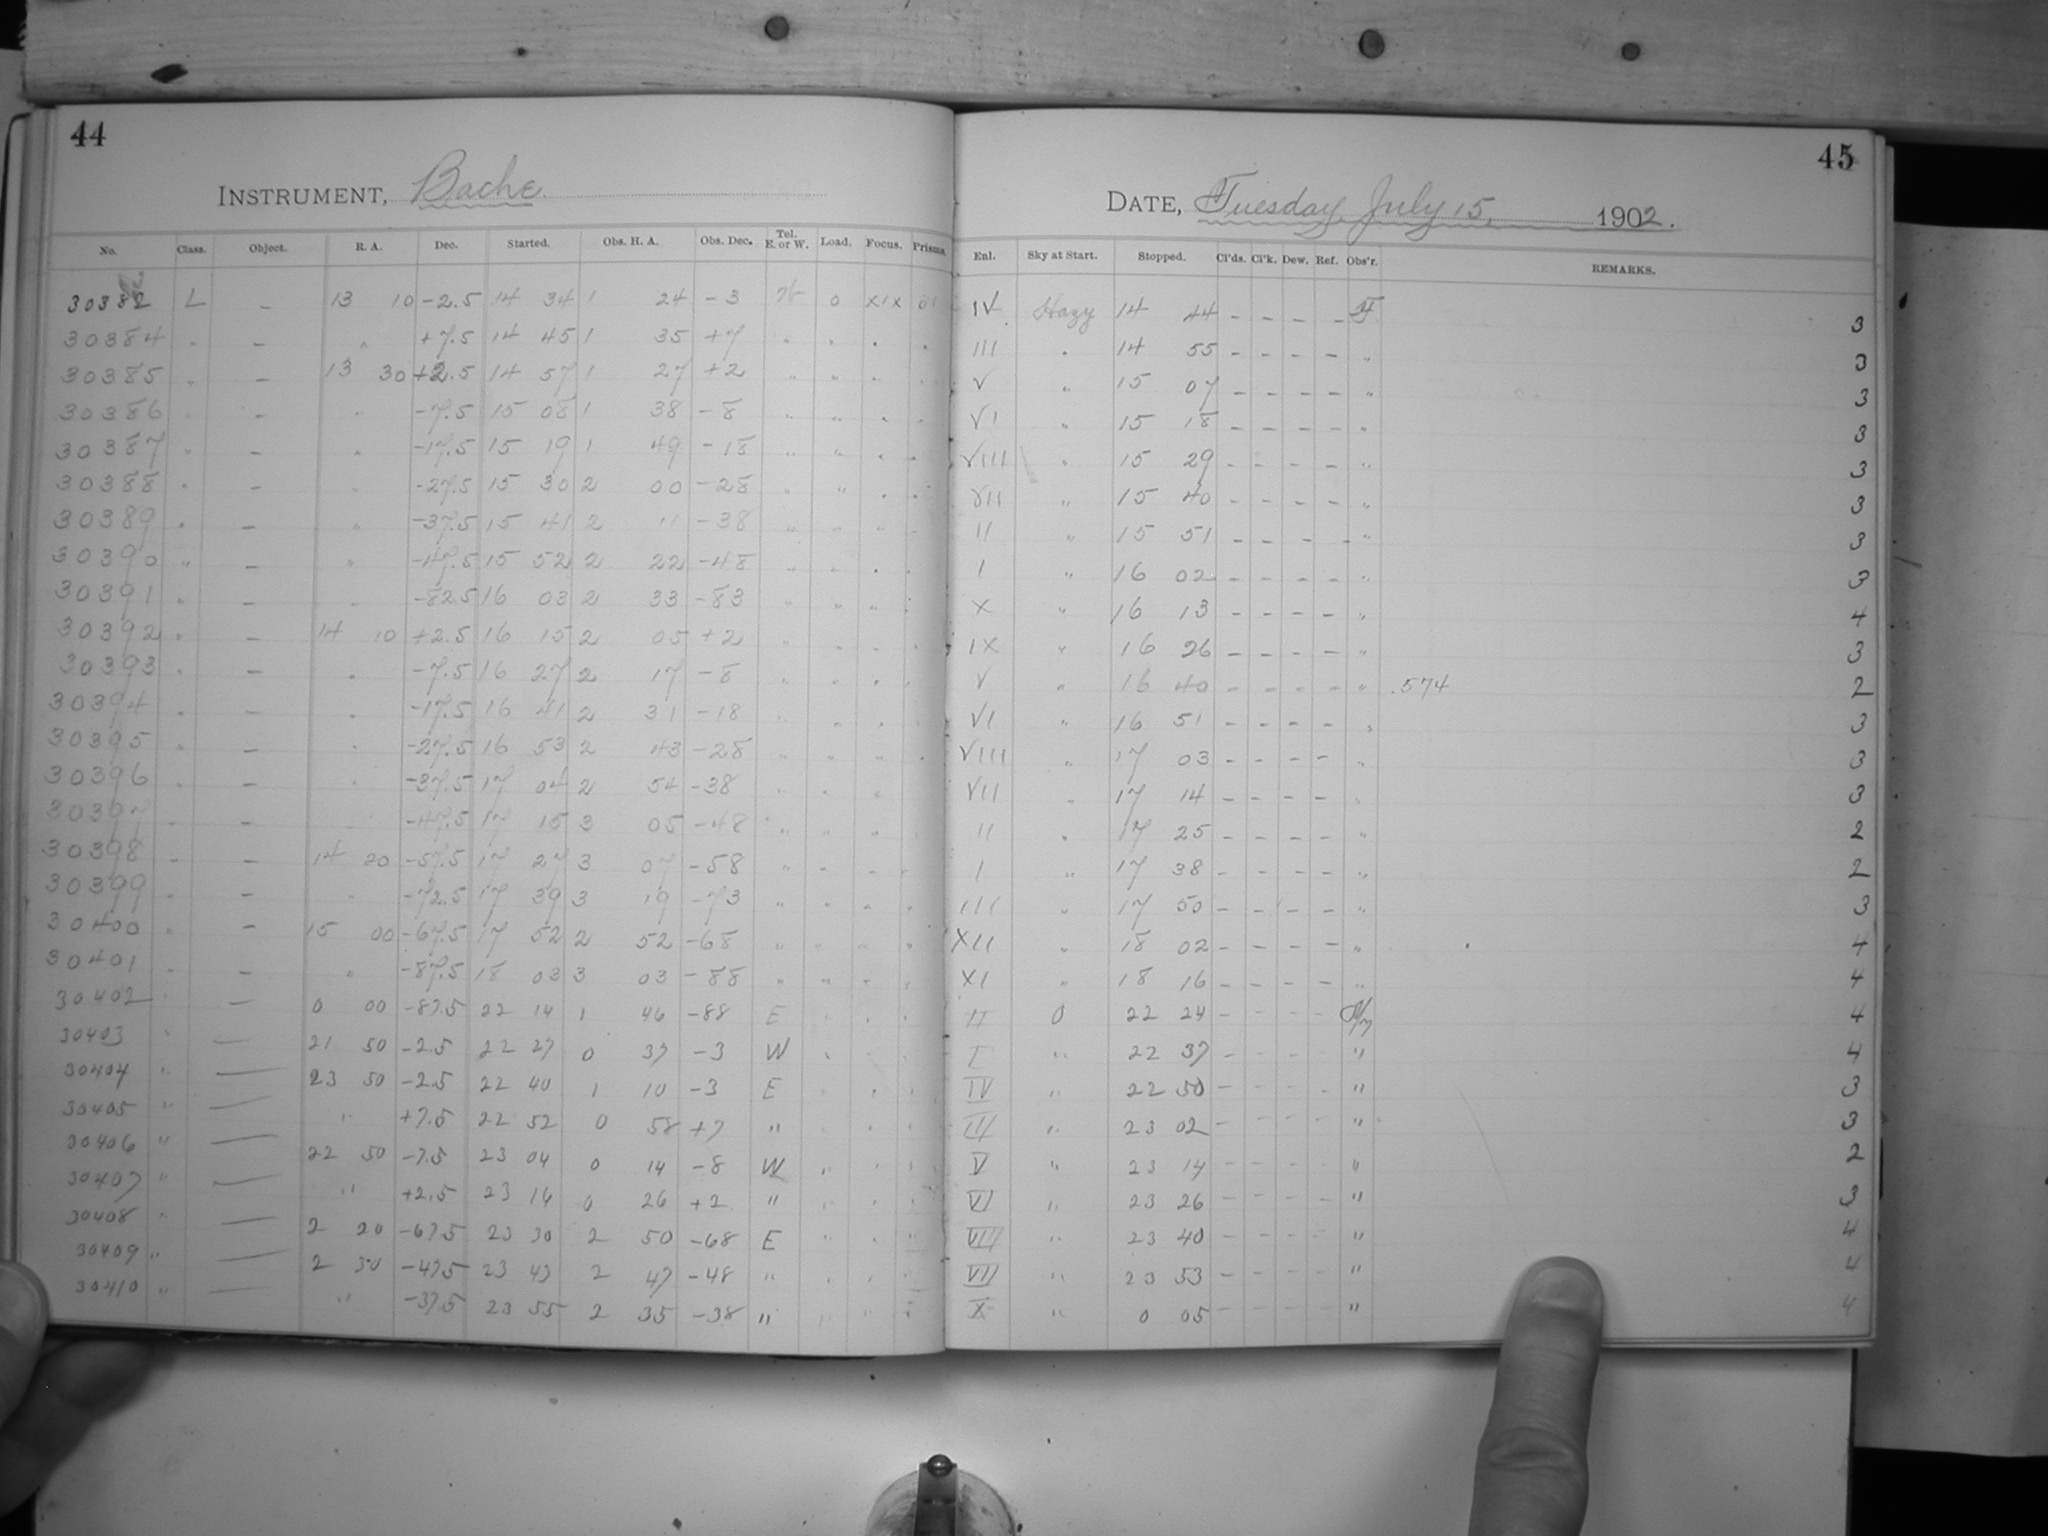 44
INSTRUMENT, Bache.
No. Class. Object. R. A. Dec. Started. Obs. H. A. Obs. Dec. Tel. E. or W. Load. Focus. Prisms.
30382 L — 13 10 -2.5 14 34 1 24 -3 W 0 XIX
30384 " — " +7.5 14 45 1 35 +7 " " " "
30385 " — 13 30 +2.5 14 57 1 27 +2 " " " "
30386 " — " -7.5 15 08 1 38 -8 " " " "
30387 " — " -17.5 15 19 1 49 -18 " " " "
30388 " — " -27.5 15 30 2 00 -28 " " " "
30389 " — " -37.5 15 41 2 11 -38 " " " "
30390 " — " -47.5 15 52 2 22 -48 " " " "
30391 " — " -82.5 16 03 2 33 -83 " " " "
30392 " — 14 10 +2.5 16 15 2 05 +2 " " " "
30393 " — " -7.5 16 27 2 17 -8 " " " "
30394 " — " -17.5 16 41 2 31 -18 " " " "
30395 " — " -27.5 16 53 2 43 -28 " " " "
30396 " — " -37.5 17 04 2 54 -38 " " "
30397 " — " -47.5 17 15 3 05 -48 " " " "
30398 " — 14 20 -57.5 17 27 3 07 -58 " " " "
30399 " — " -72.5 17 39 3 19 -73 " " " "
30400 " — 15 00 -67.5 17 52 2 52 -68 " " " "
30401 " — " -87.5 18 03 3 03 -88 " " " "
30402 " — 0 00 -87.5 22 14 1 46 -88 E " " "
30403 " — 21 50 -2.5 22 27 0 37 -3 W " " "
30404 " — 23 50 -2.5 22 40 1 10 -3 E " " "
30405 " — " +7.5 22 52 0 58 +7 " " " "
30406 " — 22 50 -7.5 23 04 0 14 -8 W " " "
30407 " — " +2.5 23 16 0 26 +2 " " " "
30408 " — 2 20 -67.5 23 30 2 50 -68 E " " "
30409 " — 2 30 -47.5 23 43 2 47 -48 " " " "
30410 " — " -37.5 23 55 2 35 -38 " " " "
45
DATE, Tuesday, July 15, 1902.
Enl. Sky at Start. Stopped. Cl'ds. Cl'k. Dew. Ref. Obs'r. REMARKS.
IV Hazy 14 44 - - - - F 3
III " 14 55 - - - - " 3
V " 15 07 - - - - " 3
VI " 15 18 - - - - " 3
VIII " 15 29 - - - - " 3
VII " 15 40 - - - - " 3
II " 15 51 - - - - " 3
I " 16 02 - - - - " 3
X " 16 13 - - - - " 4
IX " 16 26 - - - - " 3
V " 16 40 - - - - " .574 2
VI " 16 51 - - - - " 3
VIII " 17 03 - - - - " 3
VII " 17 14 - - - - " 3
II " 17 25 - - - - " 2
I " 17 38 - - - - " 2
III " 17 50 - - - - " 3
XII " 18 02 - - - - " 4
XI " 18 16 - - - - " 4
II 0 22 24 - - - - 4
I " 22 37 - - - - " 4
IV " 22 50 - - - - " 3
III " 23 02 - - - - " 3
V " 23 14 - - - - " 2
VI " 23 26 - - - - " 3
VIII " 23 40 - - - - " 4
VII " 23 53 - - - - " 4
X " 0 05 - - - - " 4